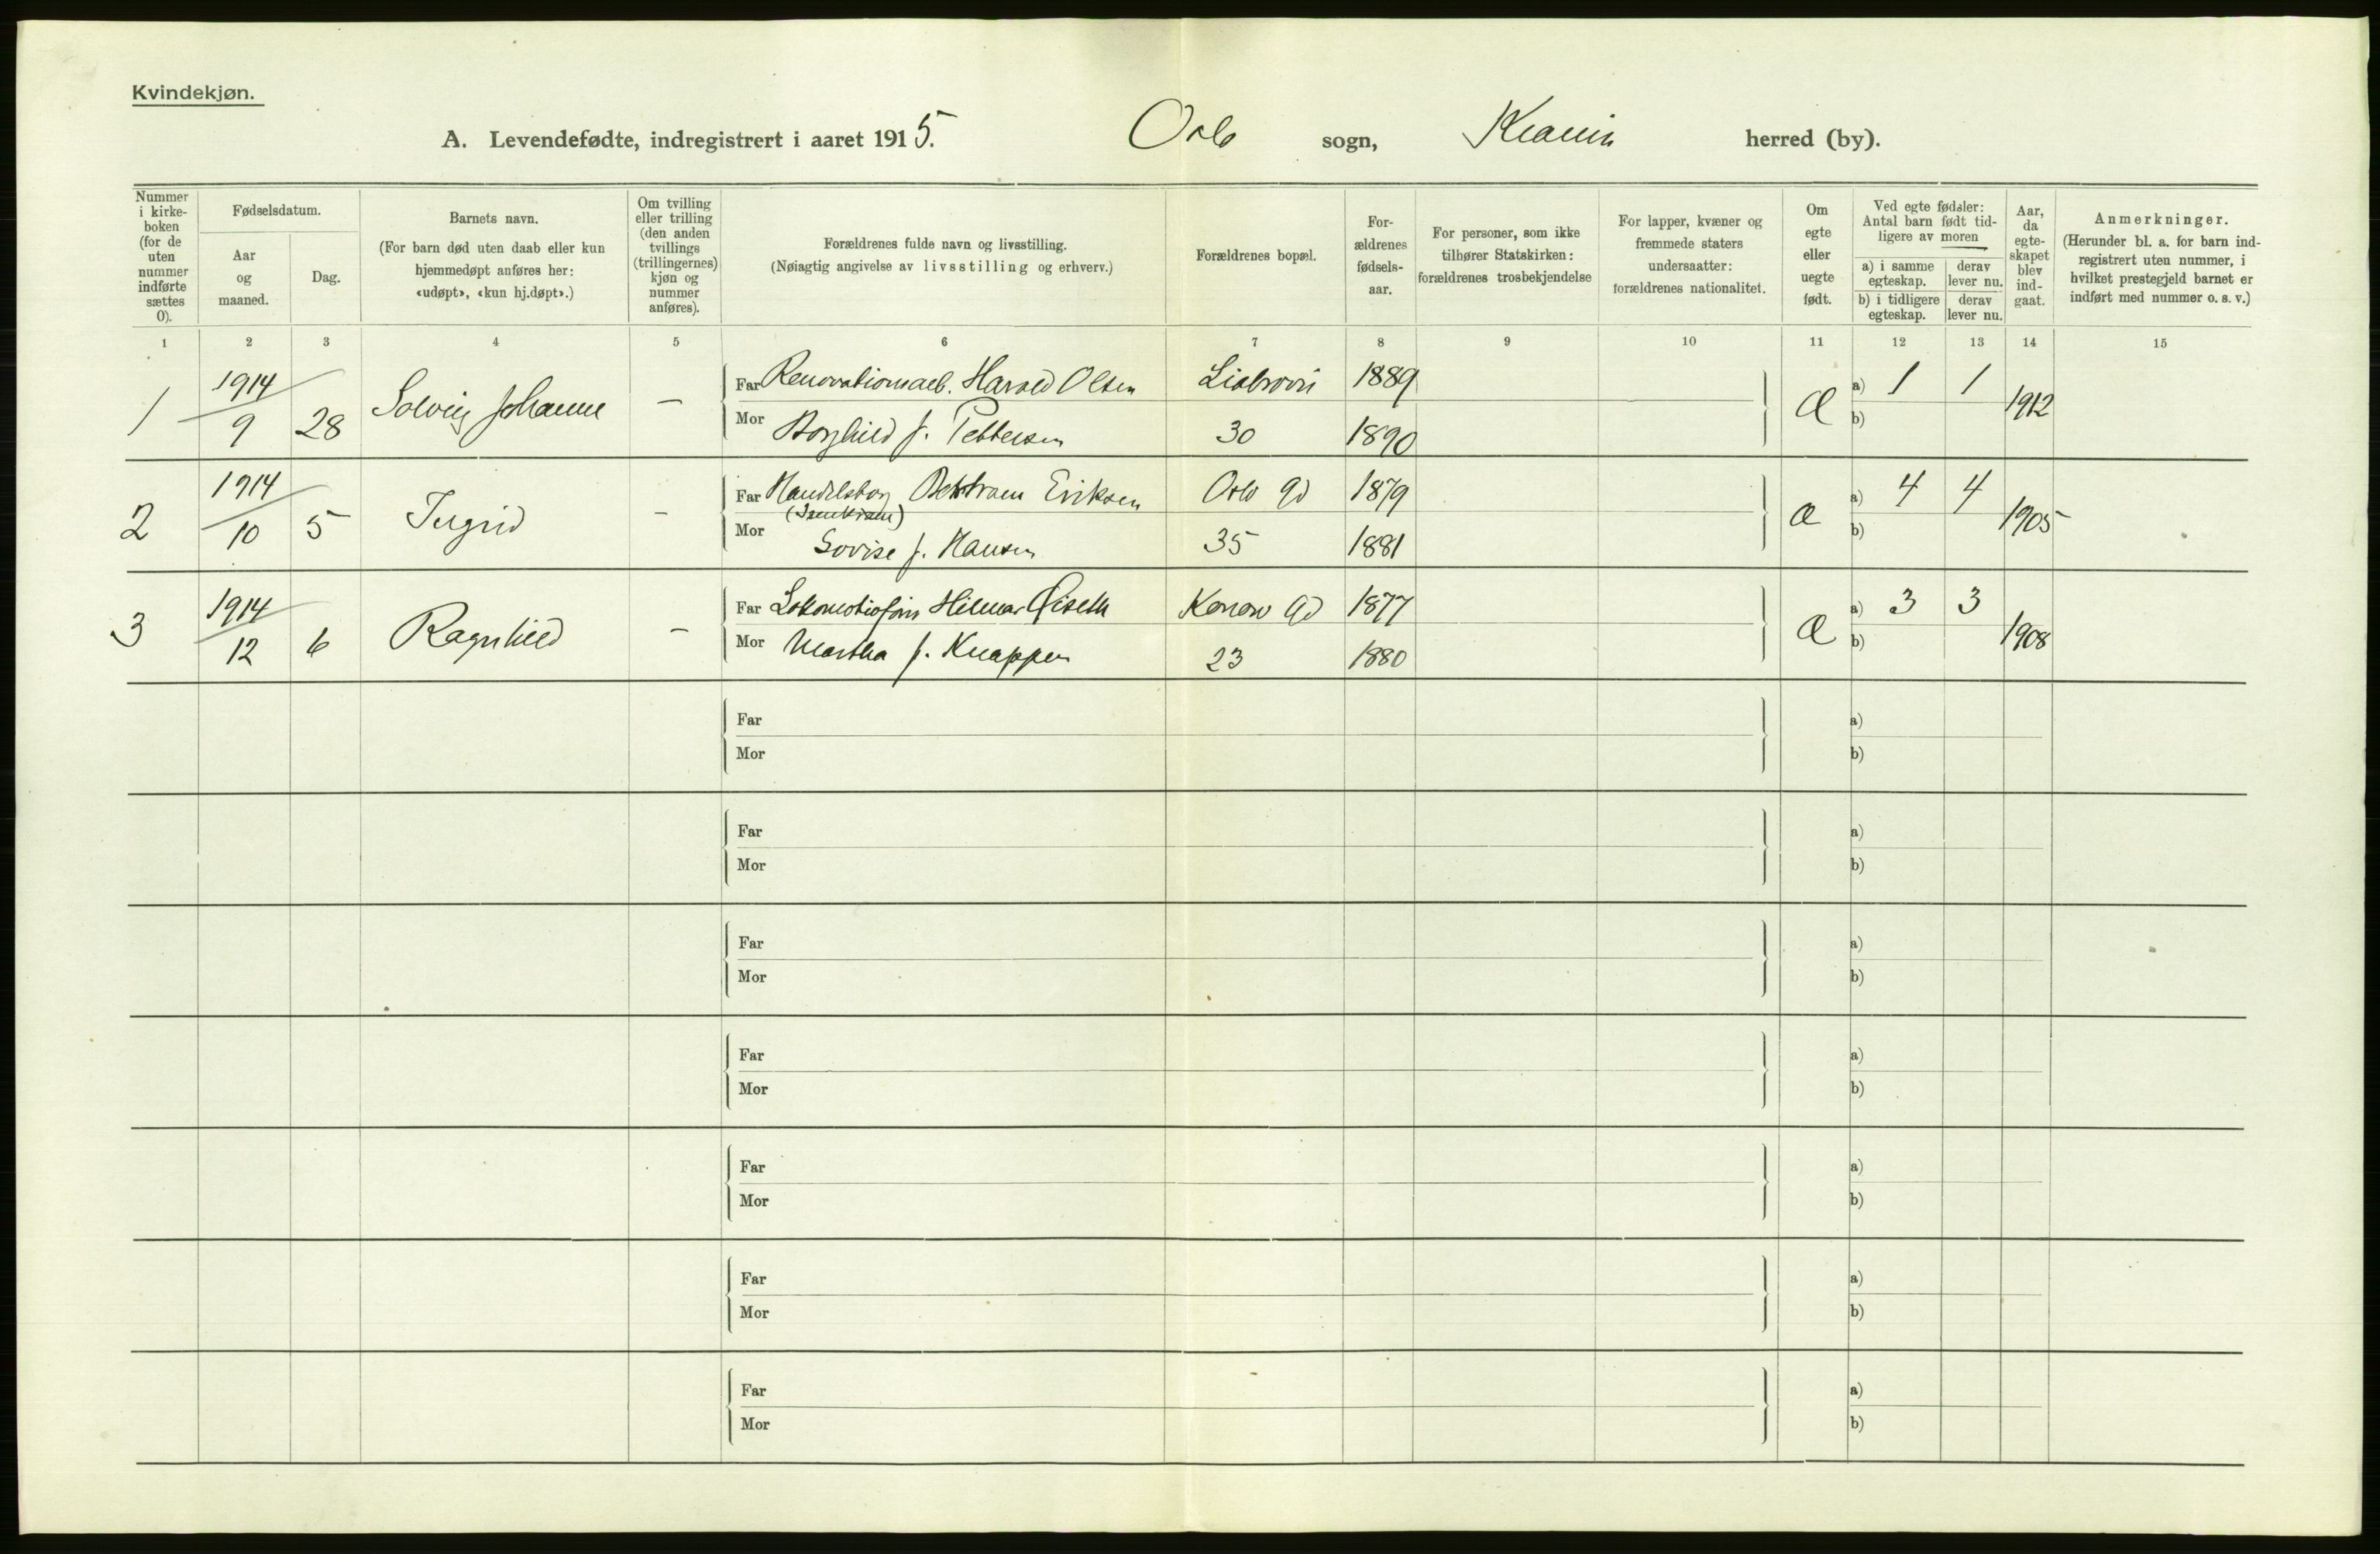 Kvindekjøn.
A. Levendefødte, indregistrert i aaret 1915. Oslo sogn, Krania herred (by).
Nummer i kirke-boken (for de uten nummer indførte sættes 0).
Fødselsdatum.
Aar og maaned.
Dag.
Barnets navn.
(For barn død uten daab eller kun hjemmedøpt anføres her: «udøpt», «kun hj.døpt».)
Om tvilling eller trilling (den anden tvillings (trillingernes) kjøn og nummer anføres).
Forældrenes fulde navn og livsstilling.
(Nøiagtig angivelse av livsstilling og erhverv.)
Forældrenes bopæl.
For-ældrenes fødsels-aar.
For personer, som ikke tilhører Statskirken: forældrenes trosbekjendelse
For lapper, kvæner og fremmede staters undersaatter: forældrenes nationalitet.
Om egte eller uegte født.
Ved egte fødsler: Antal barn født tid-ligere av moren
a) i samme egteskap.
derav lever nu.
b) i tidligere egteskap.
derav lever nu.
Aar, da egte-skapet blev ind-gaat.
Anmerkninger.
(Herunder bl. a. for barn ind-registrert uten nummer, i hvilket prestegjeld barnet er indført med nummer o. s. v.)
1 2 3 4 5 6 7 8 9 10 11 12 13 14 15
1 1914 9 28 Solveig Johanne — Far Renovationsarb. Harald Olsen Liabrovn 1889 Æ a) 1 1 1912
Mor Borghild f. Pettersen 30 1890 b)
2 1914 10 5 Ingrid – Far Handelsborg Eriksen Oslo gd 1879 Æ a) 4 4 1905
Mor Lovise f. Hansen 35 1881 b)
3 1914 12 6 Ragnhild – Far Hilmar Gd 1877 Æ a) 3 3 1908
Mor Martha f. Knappen 23 1880 b)
Far a)
Mor b)
Far a)
Mor b)
Far a)
Mor b)
Far a)
Mor b)
Far a)
Mor b)
Far a)
Mor b)
Far a)
Mor b)